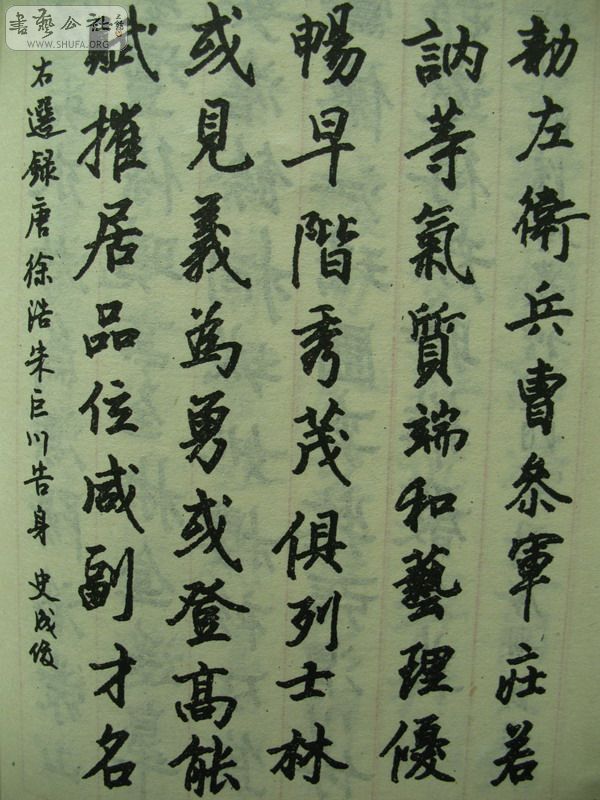 勅左衛兵曹叅軍莊若
訥等氣質端和藝理優
暢早階秀茂俱列士林
或見義為勇或登高能
賦擢居品位咸副才名
右選録唐徐浩朱巨川告身 史成俊
書藝公社
WWW.SHUFA.ORG